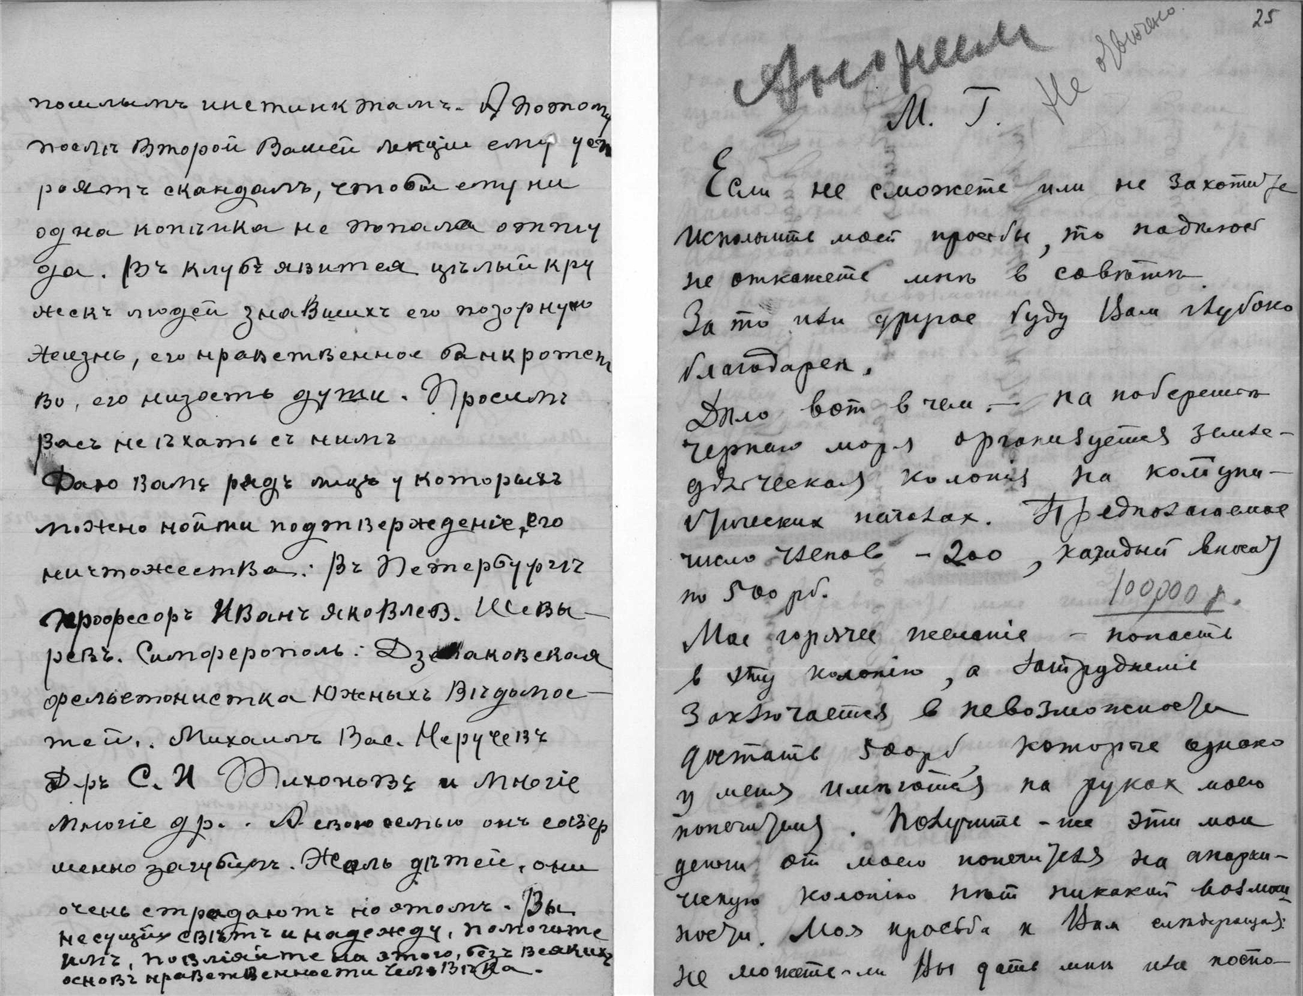 пошлымъ инстинктамъ. А потому
послѣ второй Вашей лекціи ему уст
роятъ скандалъ, чтобы ему ни
одна копѣйка не попала оттту
да. Въ клубъ явится цѣлый кру
жекъ людей знавшихъ его позорную
жизнь, его нравственное банкротст
во, его низость души. Просимъ
Васъ не ѣхать съ нимъ
Даю Вамъ рядъ лицъ у которыхъ
можно найти подтвержденіе его
ничтожества: Въ Петербургѣ
профессоръ Иванъ Яковлев. Шевы-
ревъ. Симферополь: Дзюбаковская
фельетонистка Южныхъ Вѣдомос-
тей. Михаилъ Вас. Неручевъ
Д-ръ С. И Тихоновъ и многіе
многіе др. А свою семью онъ совер
шенно загубилъ. Жаль дѣтей, они
очень страдаютъ
Вы
несущіе свѣтъ и надежду, помогите
имъ, повліяйте на этого, безъ всякихъ
основъ нравственности человѣка.
25
Аноним
Не
М. Г.
Если не сможете или не захотите
исполнить моей просьбы, то надѣюсь
не откажете мнѣ в совѣтѣ
За то или другое буду Вам глубоко
благодарен.
Дѣло вот в чем – на побережьи
Чернаго моря организуется земле-
дѣльческая колонія на комуни-
стических началах. Предполагаемое
число членов – 200, каждый вносит
по 500 рб.
100000 р.
Мое горячее желаніе – попасть
в эту колонію, а затрудненіе
заключается в невозможности
достать 500 рб, которые однако
у меня имѣются на руках моего
попечителя. Получить-же эти мои
деньги от моего попечителя на анархи-
ческую колонію нѣт никакой возмож-
ности. Моя просьба к Вам
не можете-ли Вы дать мнѣ или поспо-